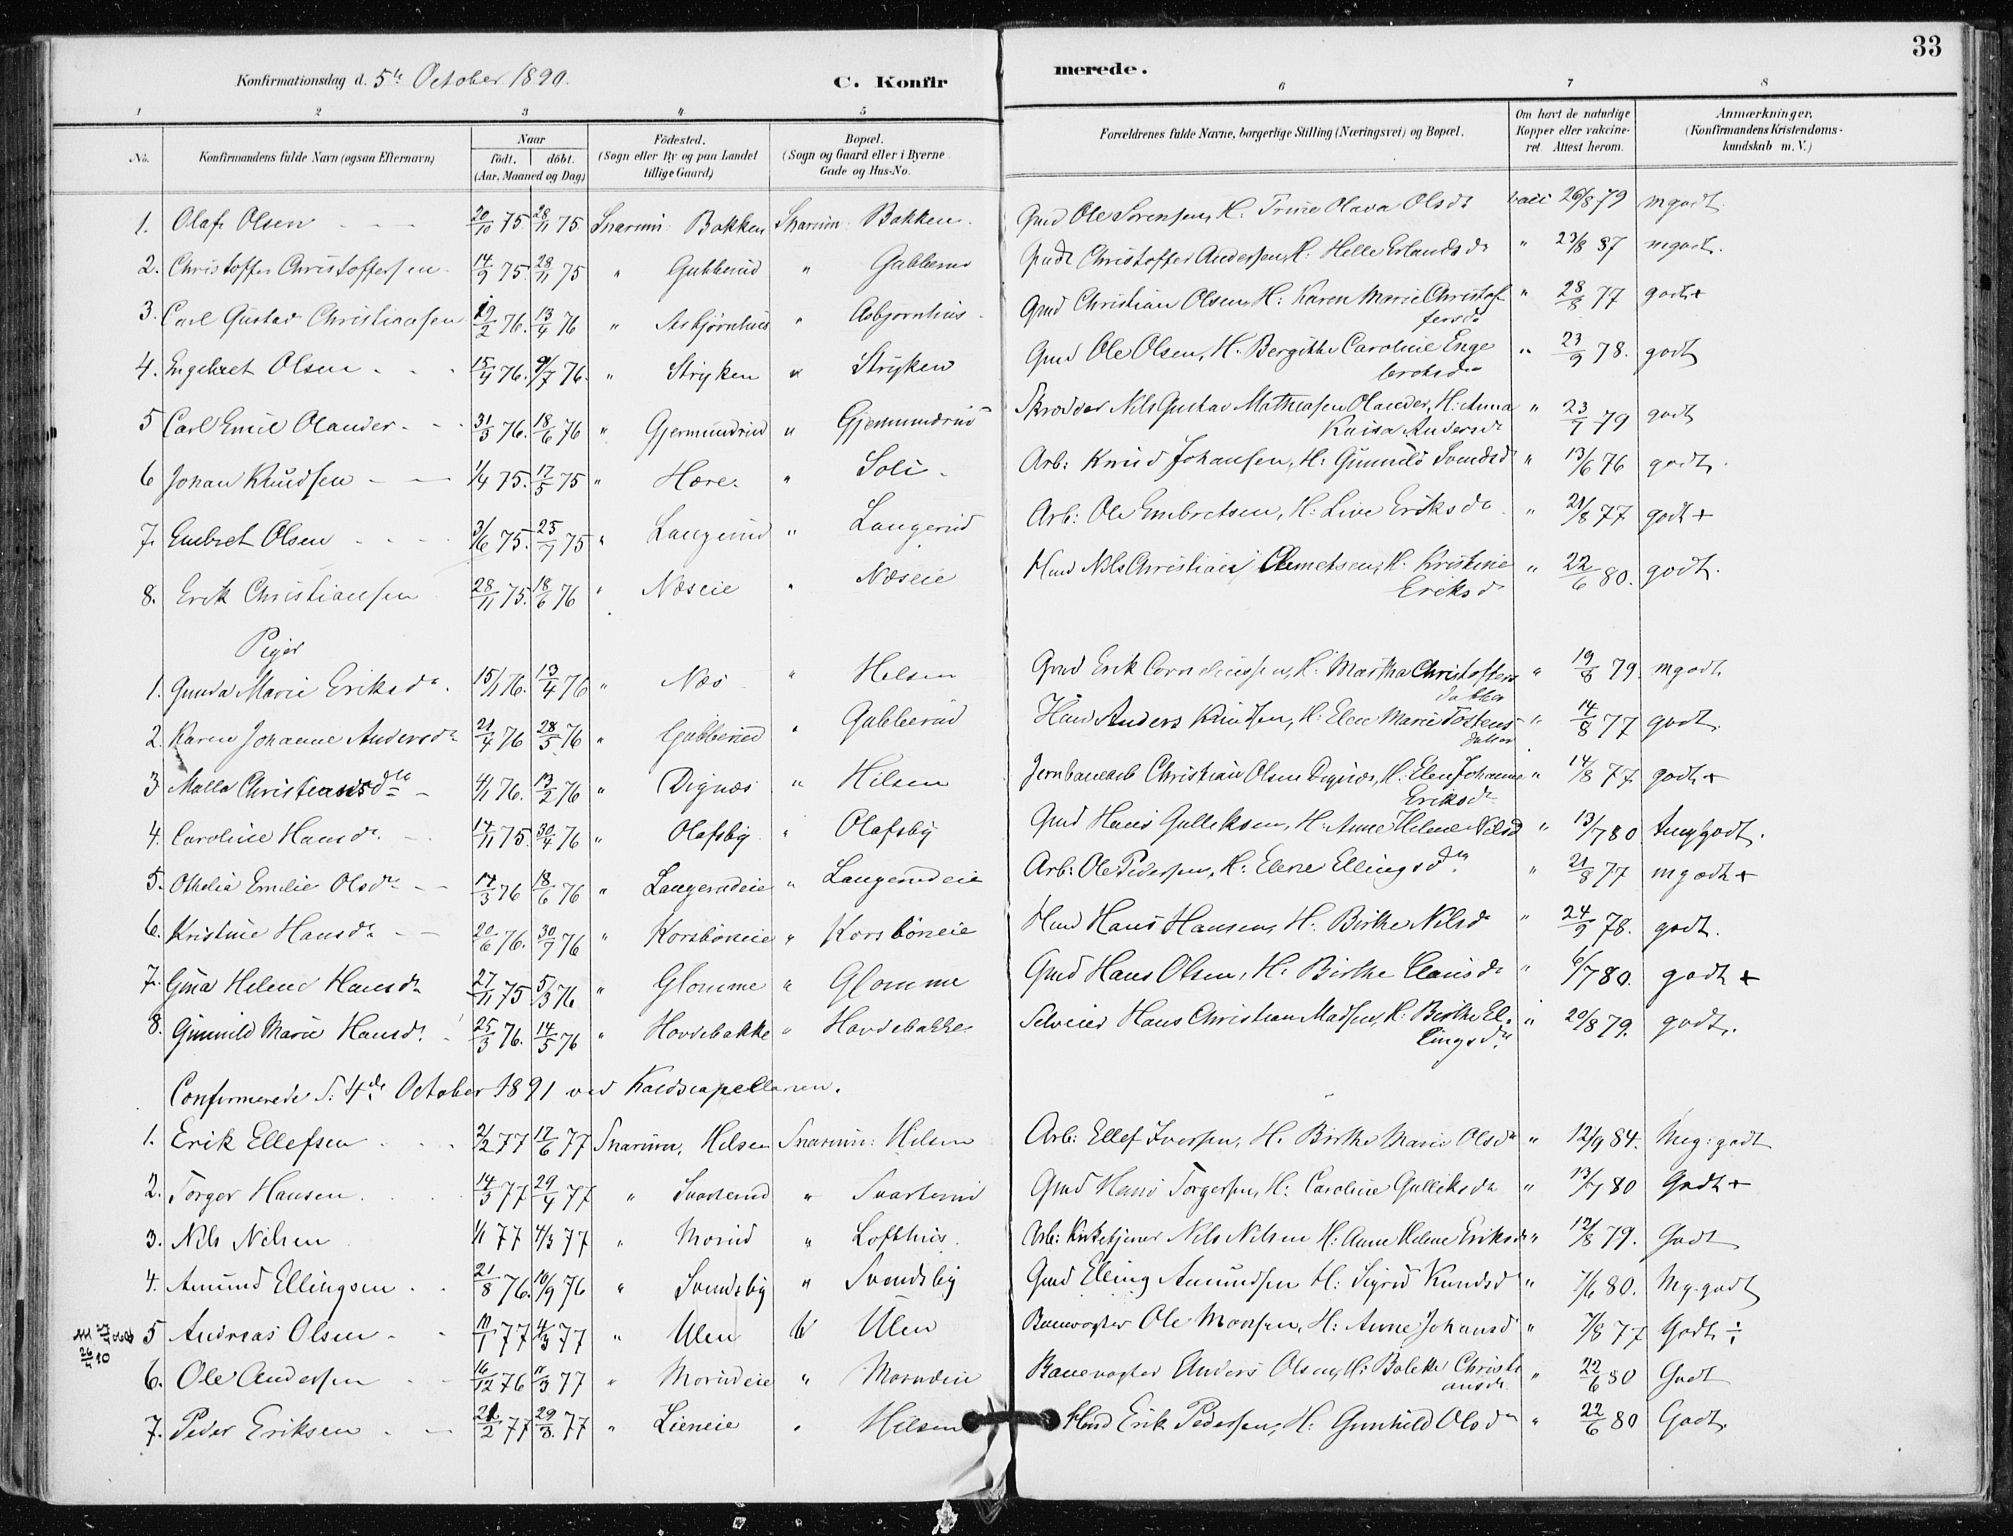 33
Konfirmationsdag d. 5te October 1890. C. Konfirmerede.
1 2 3 4 5 6 7 8
No. Konfirmandens fulde Navn (ogsaa Efternavn) Naar født. døbt. (Aar, Maaned og Dag) Fødested. (Sogn eller By og paa Landet tillige Gaard) Bopæl. (Sogn og Gaard eller i Byerne Gade og Hus-No. Forældrenes fulde Navne, borgerlige Stilling (Næringsvei) og Bopæl. Om havt de naturlige Kopper eller vakcineret. Attest herom. Anmærkninger. (Konfirmandens Kristendomskundskab m. V.)
1. Olaf Olsen 20/10 75 28/11 75 Snarum: Bakken Snarum: Bakken Gmd Ole Sørensen, H: Trine Olava Olsdr vacc 26/8 79 mgodt
2. Christoffer Christoffersen 14/9 75 28/11 75 " Gubberud " Gubberud Christoffer Andersen, H: Helle Erlandsdr " 23/8 87 mgodt.
3. Carl Gustav Christiansen 19/2 76. 13/4 76 " Asbjørnhus " Asbjørnhus Gmd Christian Olsen, H: Karen Marie Christoffersdr " 28/8 77 godt+
4. Engebret Olsen 15/4 76. 9/7 76. " Stryken " Stryken Gmd Ole Olsen, H. Bergitte Caroline Engebretsdr " 23/9 78. godt
5 Carl Emil Olander 31/3 76. 18/6 76 " Gjermundrud " Gjermundrud Skrædder Nils Gustav Mathiasen Olander, H: Anna Kaisa Andersdr " 23/7 79 godt
6 Johan Knudsen 1/4 75. 17/5 75 " Hære. " Soli Arb: Knud Johansen, H: Gunnild Svendsdr " 13/6 76 godt.
7. Embret Olsen 3/6 75. 25/7 75 " Langerud " Langerud Arb: Ole Embretsen, H: Live Eriksdr " 21/8 77 godt+
8. Erik Christiansen 28/11 75. 18/6 76 " Næseie " Næseie Hmd Nils Christian Clemetsen, H. Kristine Eriksdr " 22/6 80. godt.
Piger
1. Gunda Marie Eriksdr. 15/1 76. 13/4 76 " Næs " Helsen Gmd Erik Corneliussen, H: Martha Christoffersdatter " 19/8 79. mgodt
2. Karen Johanne Andersdr 21/4 76 28/5 76 " Gubberud " Gubberud Hmd Anders Knudsen, H: Elen Marie Tostensdatter " 14/8 77 godt.
3 Malla Christiansdtr 4/1 76. 13/2 76 " Dignæs " Helsen Jernbanearb Christian Olsen Dignæs, H. Elen Johanne Eriksdr " 14/8 77 godt+
4. Caroline Hansdr 14/11 75. 30/4 76 " Olafsby " Olafsby Gmd Hans Gulliksen, H: Anne Helene Nilsd " 13/7 80.
5. Othelia Emilie Olsdr 17/3 76 18/6 76 " Langerudeie " Langerudeie Arb: Ole Pedersen, H: Elene Ellingsdtr. " 21/8 77 mgodt+
6. Kristine Hansdr 20/6 76. 30/7 76 " Korsbøneie " Korsbøneie Hmd Hans Hansen, H. Birthe Nilsd " 24/9 78. godt.
7. Gina Helene Hansdr 27/11 75 5/3 76 " Glomme " Glomme Gmd Hans Olsen, H: Birthe Clausdr " 6/7 80. godt+
8. Gunnild Marie Hansdr. 25/3 76. 14/5 76 " Hovdebakke " Hovdebakke Selveier Hans Christian Madsen, H: Birthe Ellingsdtr. " 20/8 79. godt.
Confirmerede d. 4de October 1891 ved Kaldscapellanen.
1. Erik Ellefsen 2/2 77 17/6 77 Snarum, Helsen Snarum: Helsen Arb: Ellef Iversen, H. Birthe Marie Olsdr " 12/9 84. Meg: godt
2. Torger Hansen 14/3 77 29/4 77 " Svarterud " Svarterud Gmd Hans Torgersen, H: Caroline Gulliksdr " 13/7 80 Godt+
3. Nils Nilsen 1/1 77 4/3 77 " Morud " Lofthus. Arb: Kirketjener Nils Nilsen H: Anne Helene Eriksdr " 12/8 79. Godt
4. Amund Ellingsen 21/8 76. 10/9 76 " Svendsby " Svendsby Gmd Elling Amundsen H: Sigrid Knudsd " 7/6 80. Mg. godt
5 Andreas Olsen 10/1 77 4/3 77 " Ulen " Ulen Banevogter Ole Monsen, H: Anne Johansd " 7/8 77 Godt ÷
26/4 10
6. Ole Andersen 16/12 76 11/3 77 " Morudeie " Morudeie Banevogter Anders Olsen, H: Bolette Christiansdr " 22/6 80 Godt
7. Peder Eriksen 21/2 77 29/3 77 " Lieneie " Helsen Hmd Erik Pedersen, H. Gunhild Olsdr " 22/6 80 Godt.